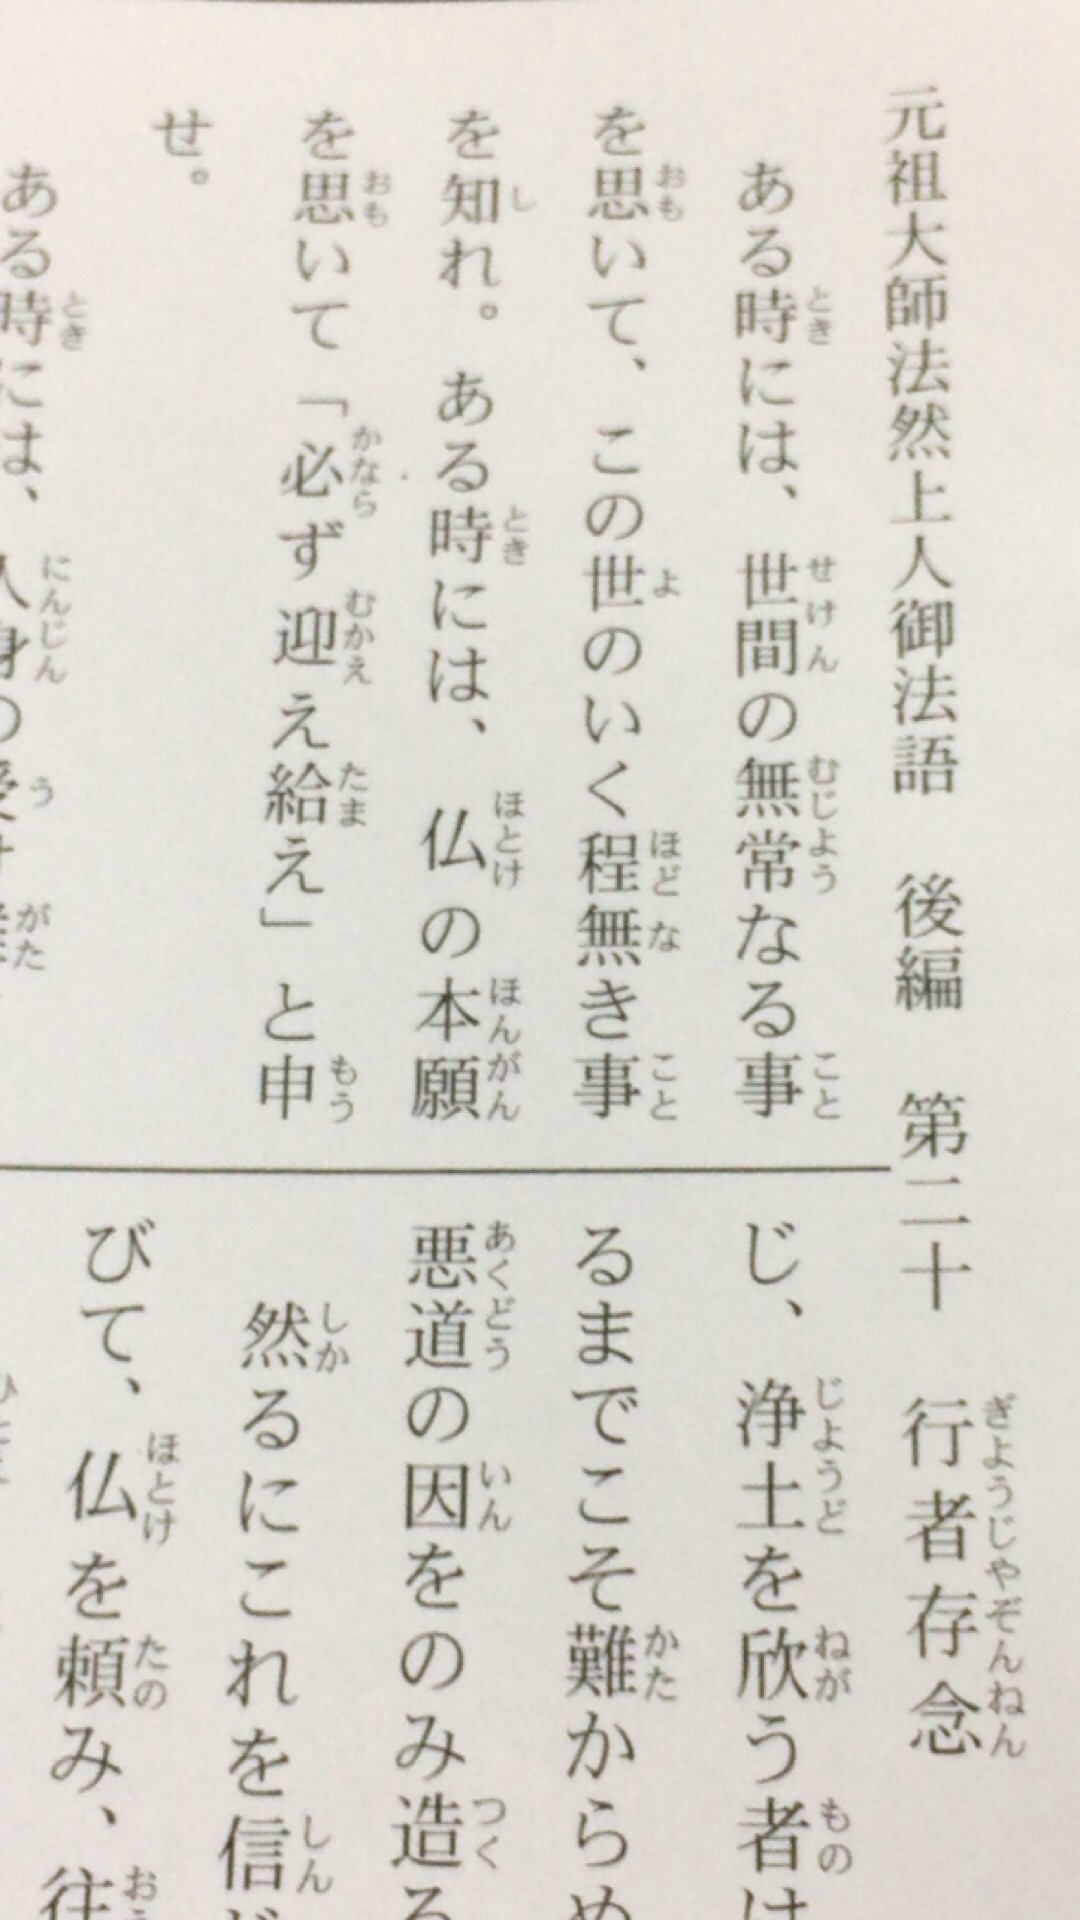 元祖大師法然上人御法語 後編 第二十 行者存念
ある時には、世間の無常なる事
を思いて、この世のいく程無き事
を知れ。ある時には、仏の本願
を思いて「必ず迎え給え」と申
せ。
ある時には、人身の受け
じ、浄土を欣う者は
るまでこそ難からめ
悪道の因をのみ造る
然るにこれを信
びて、仏を頼み、往